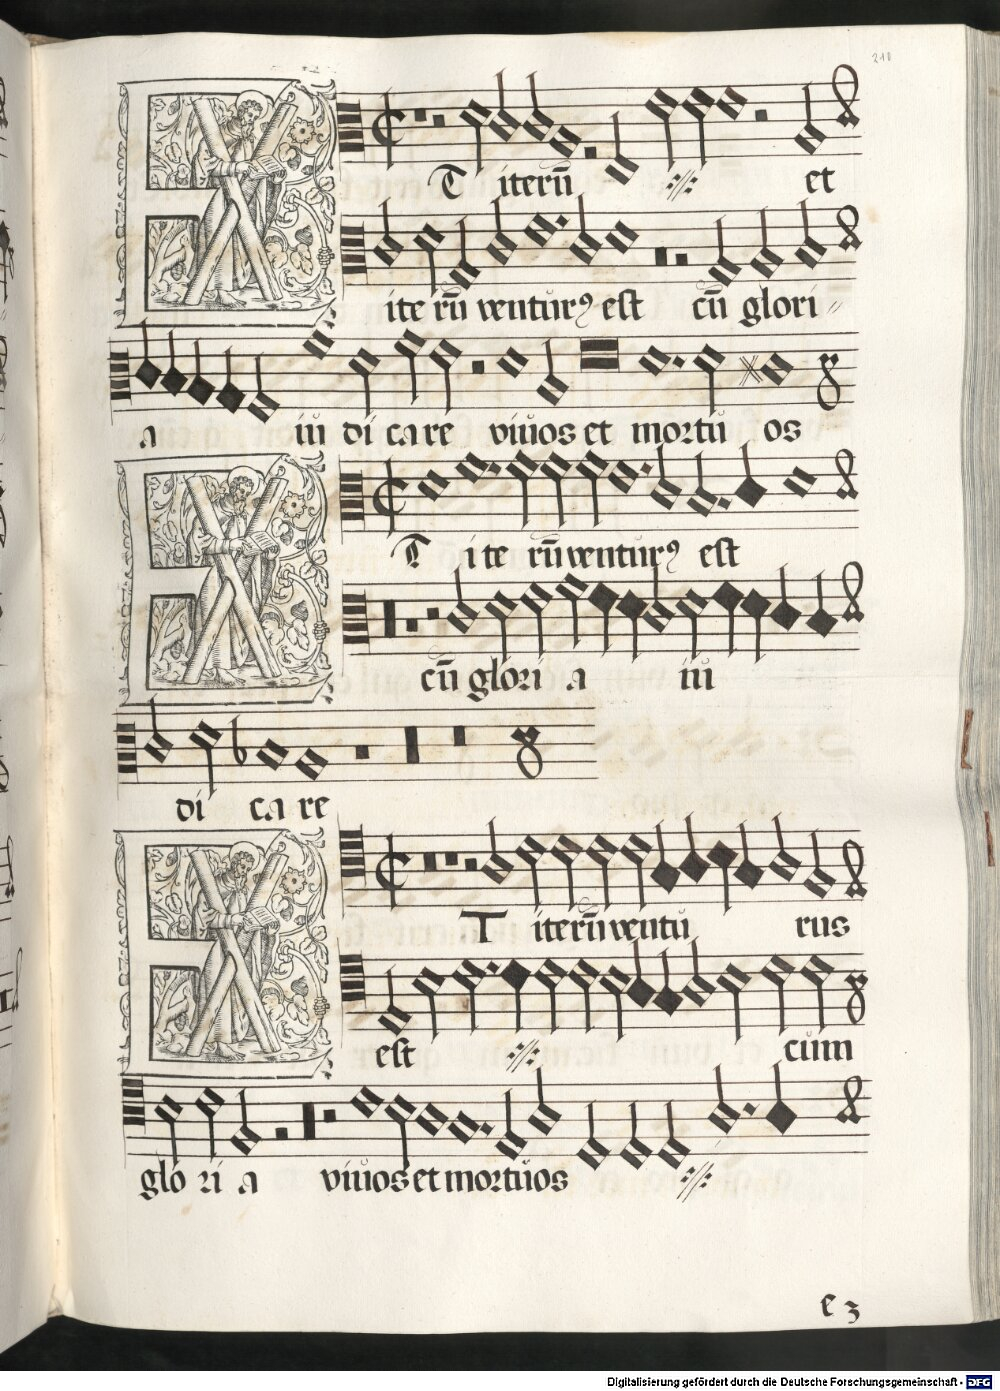 210
ET iterū ·//· et
iterū venturꝰ est cū glori
a iudicare vivos et mortuos
ET iterū venturꝰ est
cū gloria iu
dicare
ET iterū ventu rus
est ·//· cum
gloria vivos et mortuos ·//·
e 3
Digitalisierung gefördert durch die Deutsche Forschungsgemeinschaft - DFG